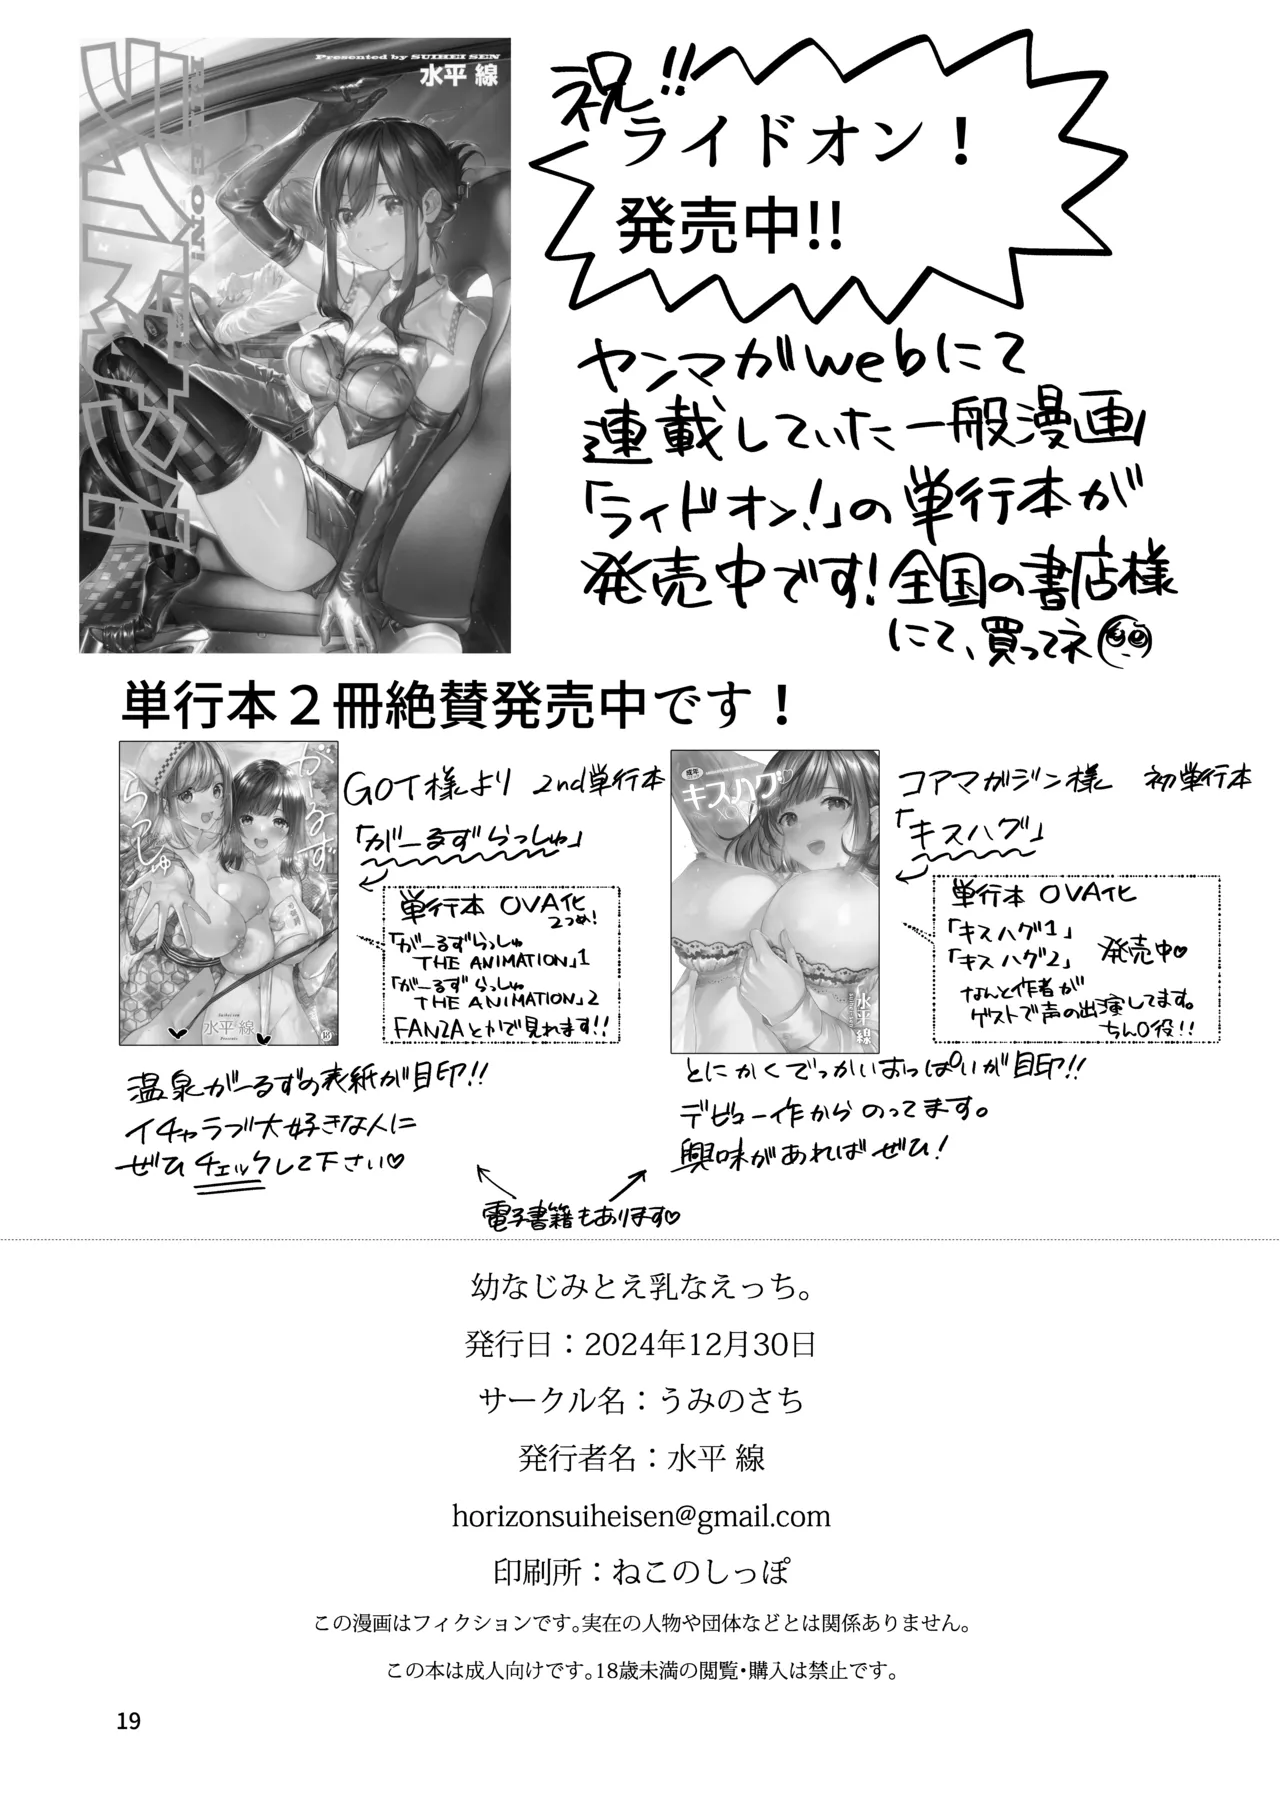 Presented by SUIHEI SEN
水平 線
RIDE ON!
ライドオン!
祝!!
ライドオン！
発売中!!
ヤンマガwebにて
連載していた一般漫画
「ライドオン!」の単行本が
発売中です!全国の書店様
にて、買ってネ
単行本２冊絶賛発売中です！
がーるず
らっしゅ
Suihei sen
水平 線
Presents
GOT様より 2nd単行本
「がーるずらっしゅ」
単行本 OVA化
2つめ!
「がーるずらっしゅ
THE ANIMATION」1
「がーるずらっしゅ
THE ANIMATION」2
FANZAとかで見れます!!
温泉がーるずの表紙が目印!!
イチャラブ大好きな人に
ぜひチェックして下さい♡
成年
キスハグ
水平線
コアマガジン様 初単行本
「キスハグ」
単行本 OVA化
「キスハグ1」
「キスハグ2」 発売中♡
なんと作者が
ゲストで声の出演してます。
ちん○役!!
とにかくでっかいおっぱいが目印!!
デビュー作からのってます。
興味があればぜひ!
電子書籍もあります♡
幼なじみとえ乳なえっち。
発行日：2024年12月30日
サークル名：うみのさち
発行者名：水平 線
horizonsuiheisen@gmail.com
印刷所：ねこのしっぽ
この漫画はフィクションです。実在の人物や団体などとは関係ありません。
この本は成人向けです。18歳未満の閲覧・購入は禁止です。
19